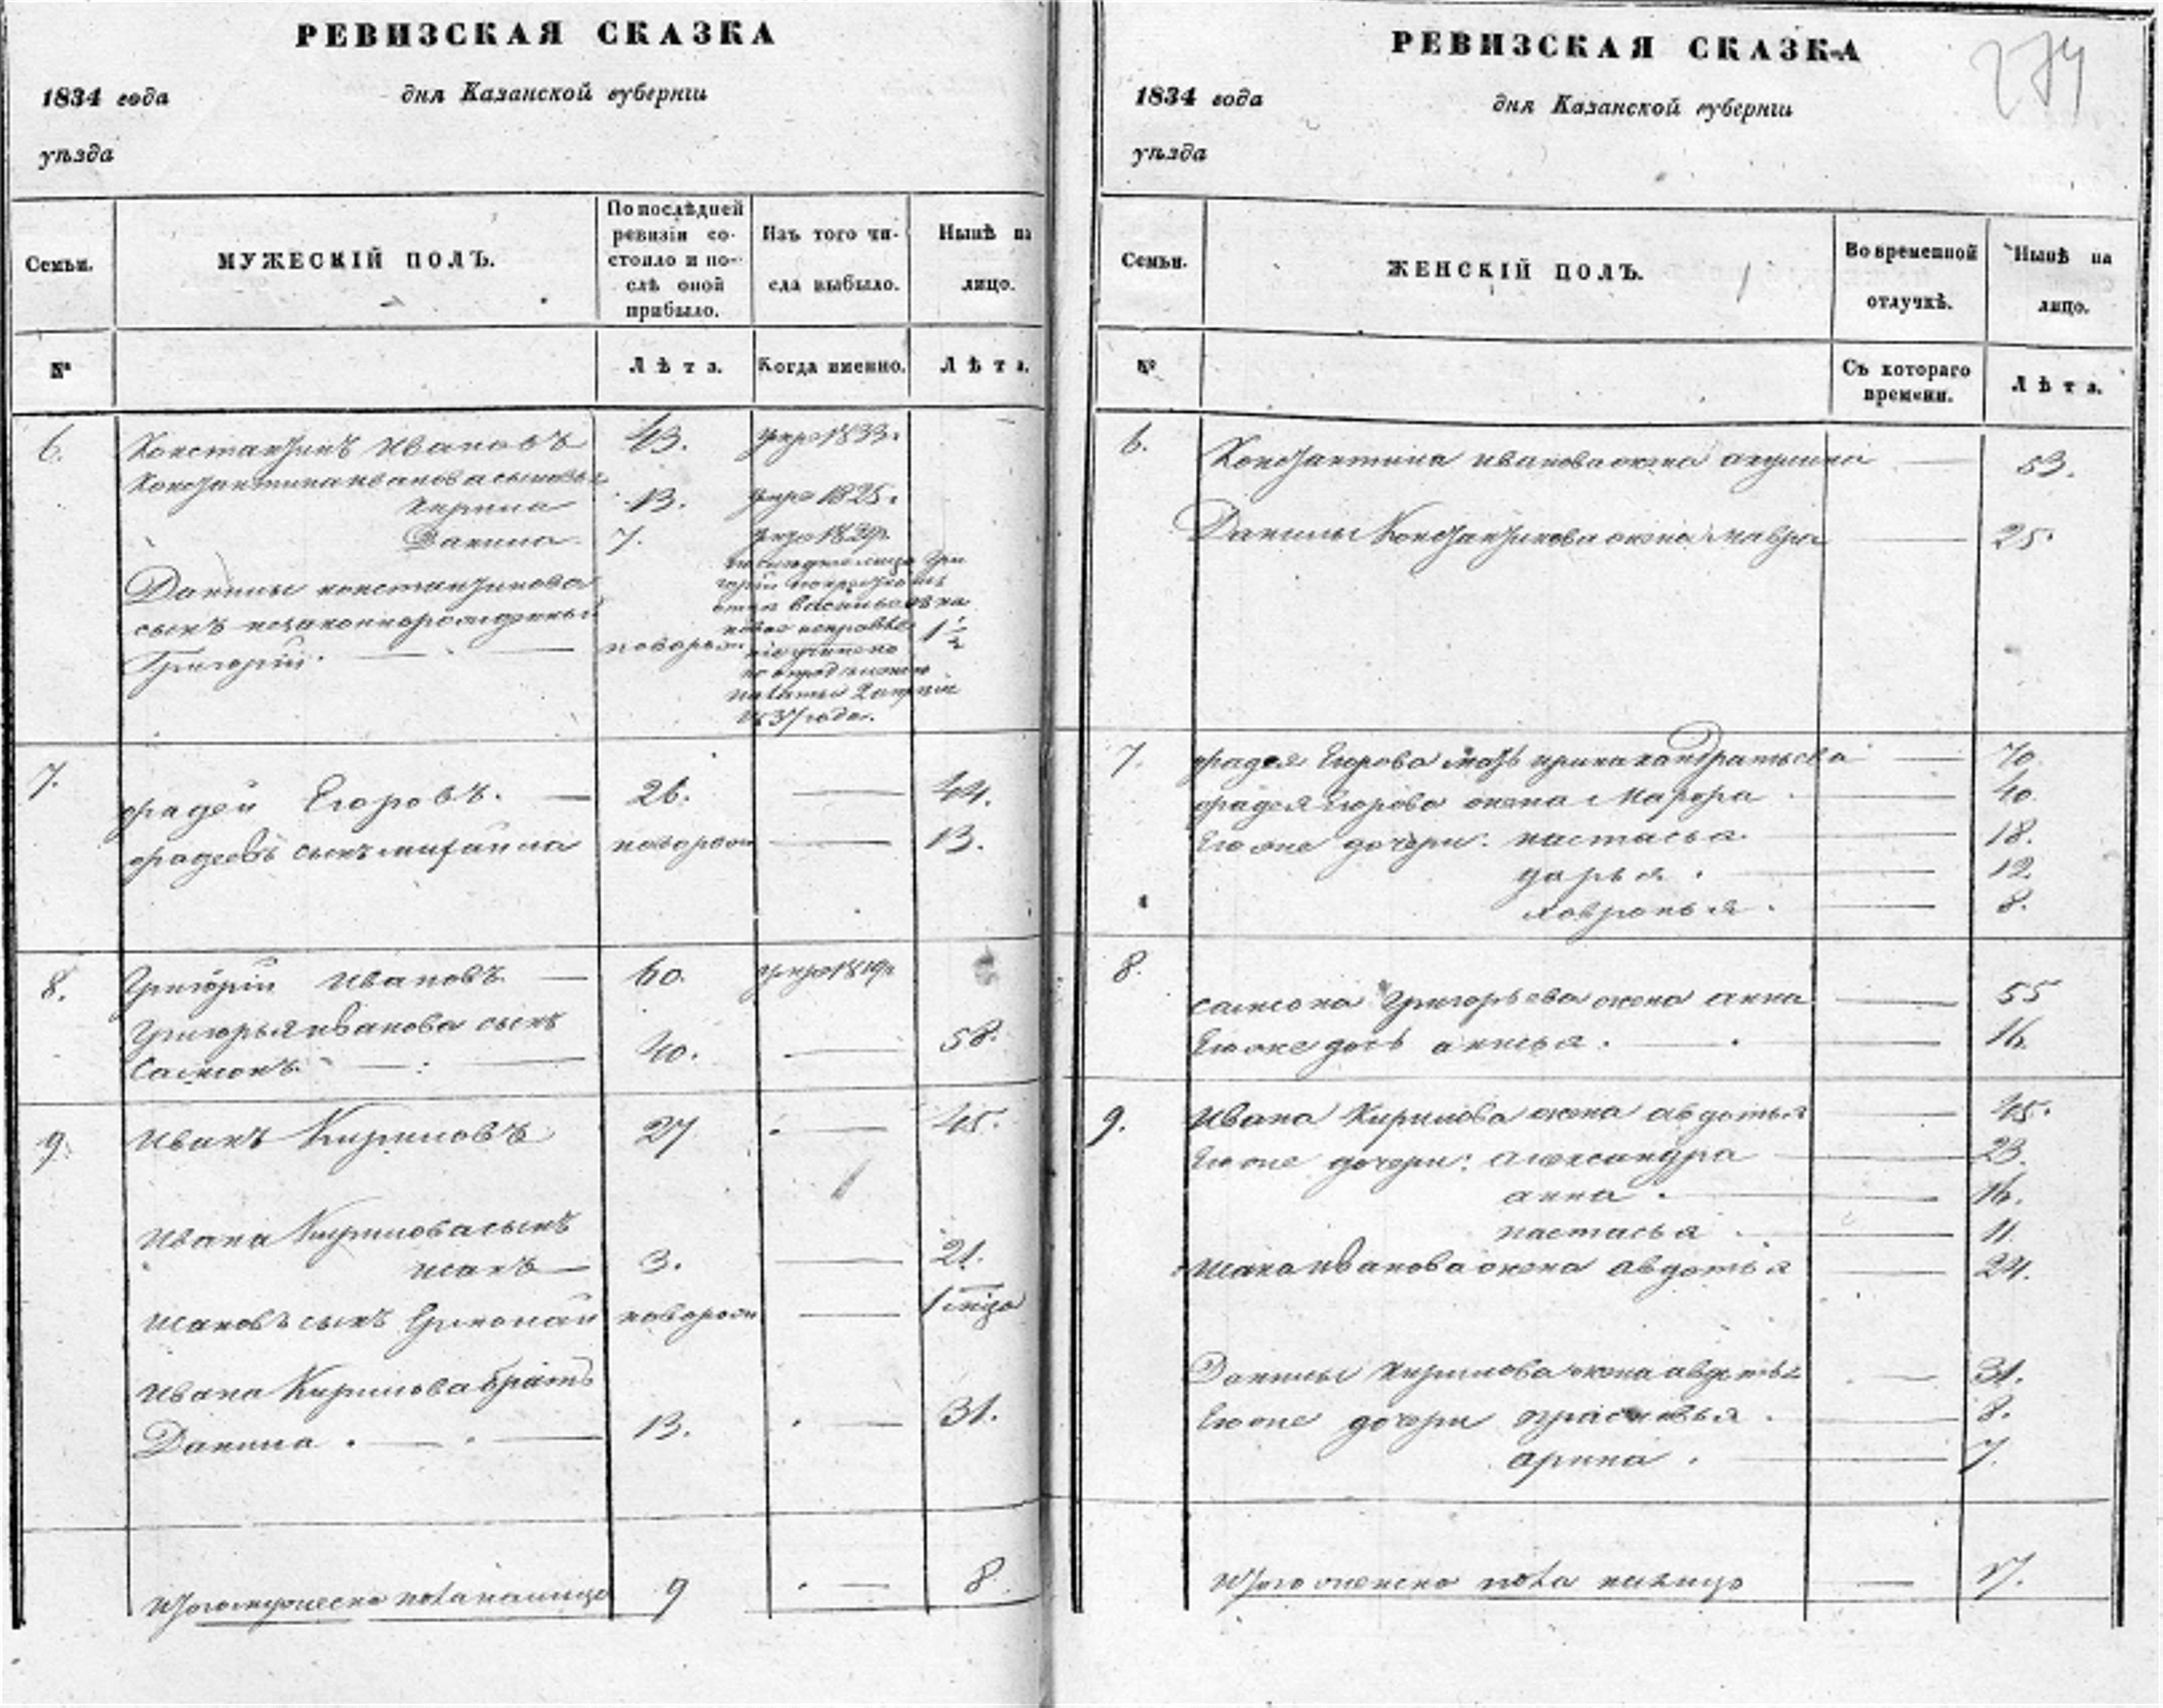 РЕВИЗСКАЯ СКАЗКА
1834 года дня Казанской губернiи
уѣзда
Семьи.
МУЖЕСКIЙ ПОЛЪ.
По послѣдней
ревизiи со-
стояло и по-
слѣ оной
прибыло.
Изъ того чи-
сла выбыло.
Нынѣ на
лицо.
№
Лѣта.
Когда именно.
Лѣта.
6. Константинъ Ивановъ 43. умре 1833.
Константина иванова сыновья
Кирила 13. умре 1825.
Данила. 7.
Данилы константинова
сынъ незаконнорожденный
Григорiй. — новорож. 1 1/2
7. фадей Егоровъ. — 26. — 44.
фадеевъ сынъ михайла новорож — 13.
8. Григорiй Ивановъ — 60. умре 1819
Григорья иванова сынъ
Самсонъ. — 40. — 58.
9. Иванъ Кириловъ 27 — 45.
Ивана Кирилова сынъ
исакъ — 3. — 21.
исаковъ сынъ Ермолай новорож — 1 мѣца
Ивана Кирилова братъ
Данила. — 13. — 31.
Итого мужеска пола налицо 9 — 8.
РЕВИЗСКАЯ СКАЗКА
274
1834 года дня Казанской губернiи
уѣзда
Семьи.
ЖЕНСКIЙ ПОЛЪ.
Во временной
отлучкѣ.
Нынѣ на
лицо.
№
Съ котораго
времени.
Лѣта.
6. Константина иванова жена акулина — 53.
Данилы Константинова жена мавра — 25.
7. фадея Егорова мать ирина кандратьева — 70.
фадея Егорова жена Марфа — 40.
Его же дочери: настасья — 18.
дарья. — 12.
ховронья. — 8.
8.
самсона Григорьева жена анна — 55
Его же дочь анисья. — 16.
9. Ивана Кирилова жена авдотья — 45.
Его же дочери: александра — 23.
анна. — 16.
настасья — 11.
исака иванова жена авдотья — 24.
Данилы Кирилова жена авдотья — 31.
Его же дочери прасковья. — 8.
арина. — 7.
Итого женска пола налицо — 17.